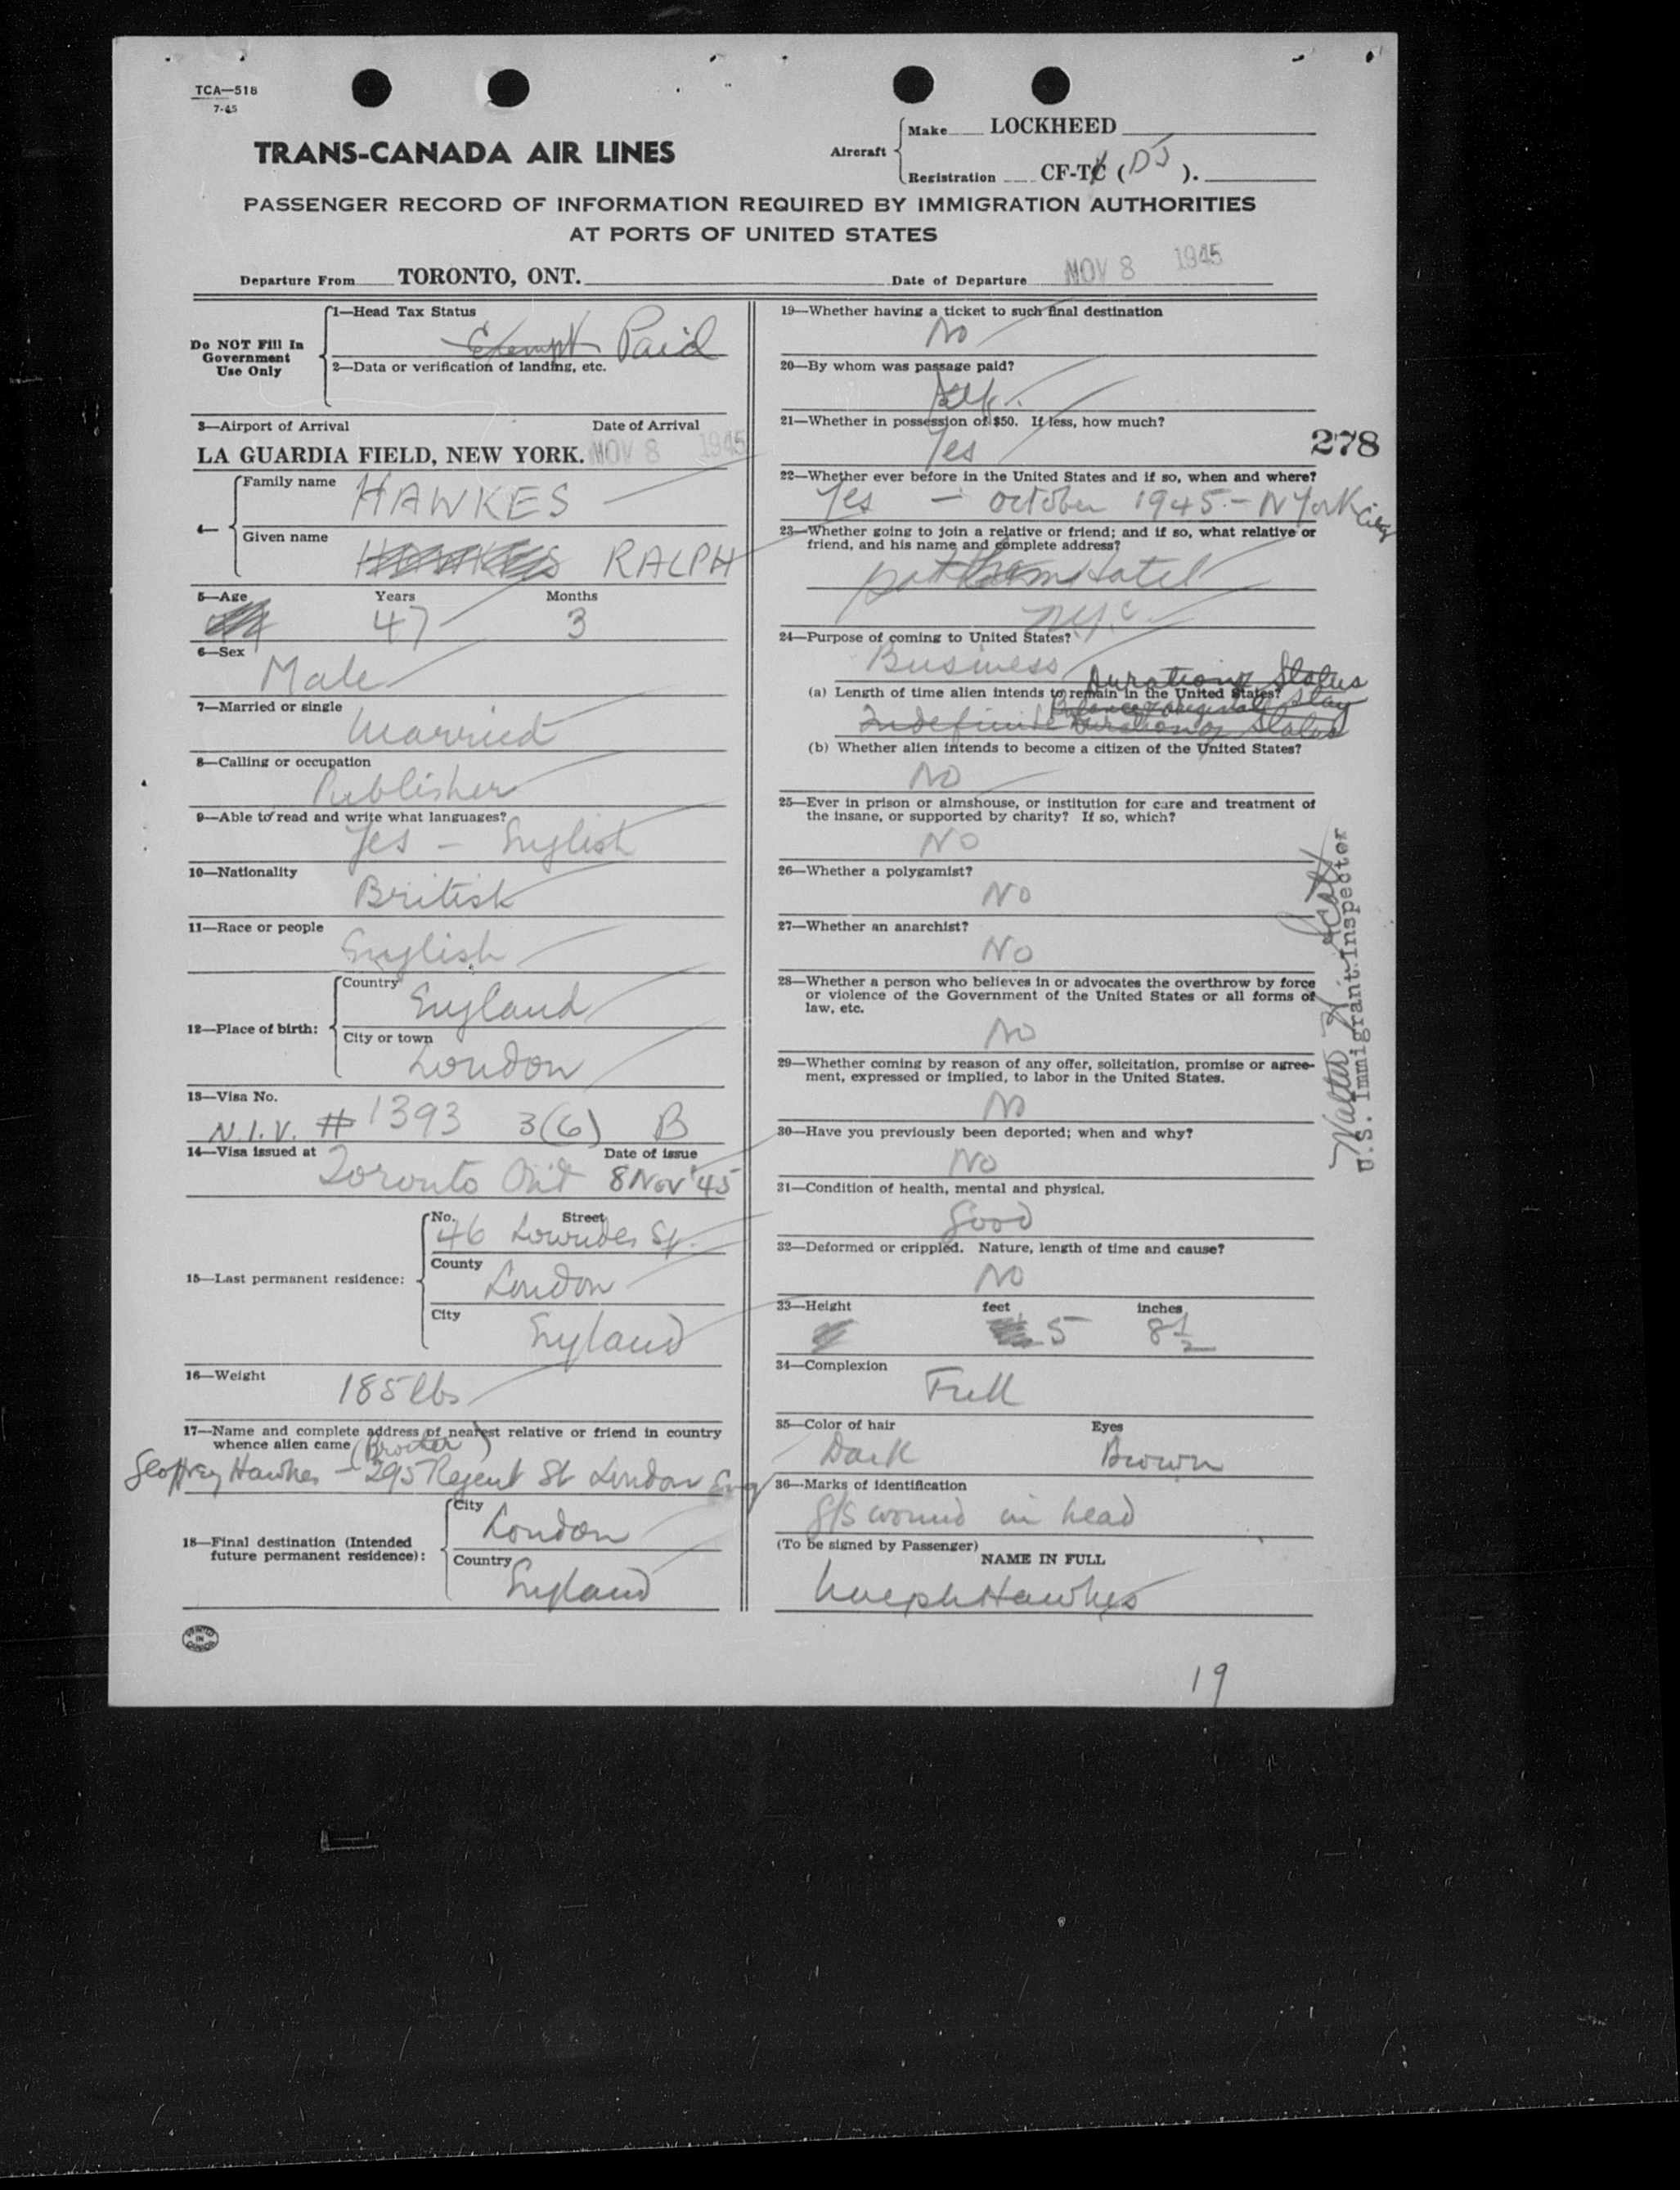 TCA—518
7-45
TRANS-CANADA AIR LINES
Aircraft
Make LOCKHEED
Registration CF-TC ( DJ ).
PASSENGER RECORD OF INFORMATION REQUIRED BY IMMIGRATION AUTHORITIES
AT PORTS OF UNITED STATES
Departure From TORONTO, ONT. Date of Departure NOV 8 1945
Do NOT Fill In
Government
Use Only
1—Head Tax Status
Exempt Paid
2—Data or verification of landing, etc.
3—Airport of Arrival Date of Arrival
LA GUARDIA FIELD, NEW YORK. NOV 8 1945
4—
Family name HAWKES
Given name HAWKES RALPH
5—Age Years Months
47 3
6—Sex
Male
7—Married or single
Married
8—Calling or occupation
Publisher
9—Able to read and write what languages?
Yes — English
10—Nationality
British
11—Race or people
English
12—Place of birth:
Country
England
City or town
London
13—Visa No.
N.I.V. # 1393 3(6) B
14—Visa issued at Date of issue
Toronto Ont 8 Nov '45
15—Last permanent residence:
No. Street
46 Lowndes Sq.
County
London
City
England
16—Weight
185 lbs
17—Name and complete address of nearest relative or friend in country
whence alien came (Brother)
Geoffrey Hawkes — 295 Regent St London Eng
18—Final destination (Intended
future permanent residence):
City
London
Country
England
PRINTED
IN
CANADA
19—Whether having a ticket to such final destination
No
20—By whom was passage paid?
Self.
21—Whether in possession of $50. If less, how much?
Yes
278
22—Whether ever before in the United States and if so, when and where?
Yes — October 1945 — N York City
23—Whether going to join a relative or friend; and if so, what relative or
friend, and his name and complete address?
Hotel
NYC
24—Purpose of coming to United States?
Business
Duration of Status
(a) Length of time alien intends to remain in the United States?
Balance original stay
Indefinite Duration of Status
(b) Whether alien intends to become a citizen of the United States?
No
25—Ever in prison or almshouse, or institution for care and treatment of
the insane, or supported by charity? If so, which?
No
26—Whether a polygamist?
No
27—Whether an anarchist?
No
28—Whether a person who believes in or advocates the overthrow by force
or violence of the Government of the United States or all forms of
law, etc.
No
29—Whether coming by reason of any offer, solicitation, promise or agree-
ment, expressed or implied, to labor in the United States.
No
30—Have you previously been deported; when and why?
No
31—Condition of health, mental and physical.
Good
32—Deformed or crippled. Nature, length of time and cause?
No
33—Height feet inches
5 8½
34—Complexion
Full
35—Color of hair Eyes
Dark Brown
36—Marks of identification
G/S wound in head
(To be signed by Passenger)
NAME IN FULL
Ralph Hawkes
Walter Scott
U.S. Immigrant Inspector
19